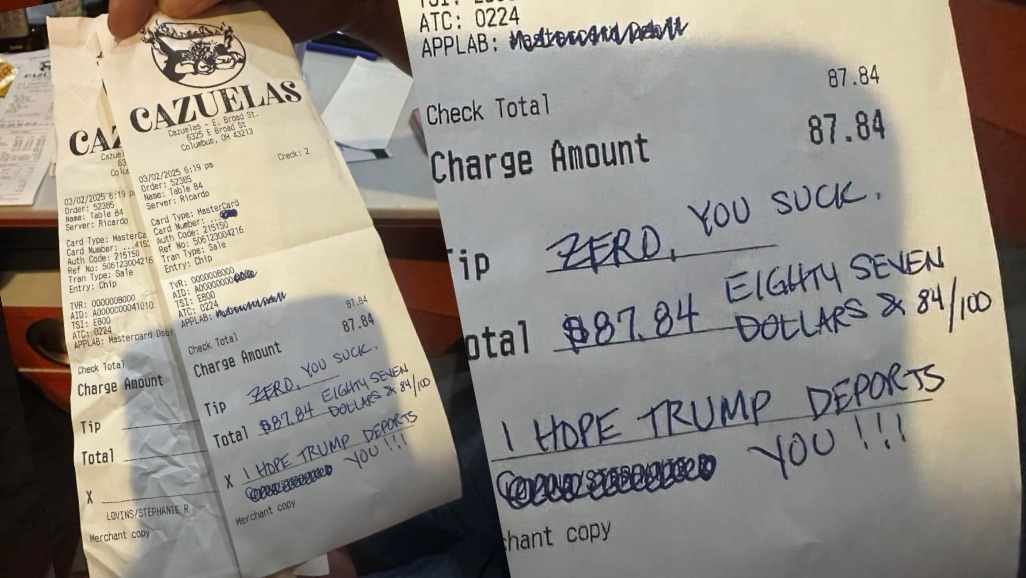 CAZ
Cazue
Colu
03/02/2025 6:19 p
Order: 52385
Name: Table 84
Server: Ricardo
Card Type: MasterCa
Card Number: ...415
Auth Code: 215150
Ref No: 506123004216
Tran Type: Sale
Entry: Chip
TVR: 0000008000
AID: A0000000041010
TSI: E800
ATC: 0224
APPLAB: Mastercard Deb
Check Total
Charge Amount
Tip
Total
X
LOVINS/STEPHANIE R
Merchant copy
CAZUELAS
Cazuelas - E. Broad St.
6325 E Broad St
Columbus, OH 43213
03/02/2025 6:19 pm
Check: 2
Order: 52385
Name: Table 84
Server: Ricardo
Card Type: MasterCard
Card Number: ...
Auth Code: 215150
Ref No: 506123004216
Tran Type: Sale
Entry: Chip
TVR: 0000008000
AID: A0000000
TSI: E800
ATC: 0224
APPLAB:
87.84
Check Total
87.84
Charge Amount
Tip ZERO, YOU SUCK.
Total $87.84 EIGHTY SEVEN
DOLLARS & 84/100
X I HOPE TRUMP DEPORTS
YOU !!!
Merchant copy
ATC: 0224
APPLAB:
87.84
Check Total
87.84
Charge Amount
ip ZERO, YOU SUCK.
otal $87.84 EIGHTY SEVEN
DOLLARS & 84/100
I HOPE TRUMP DEPORTS
YOU !!!
chant copy